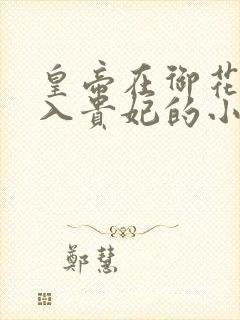 皇帝在御花
入貴妃的小
鄭慧